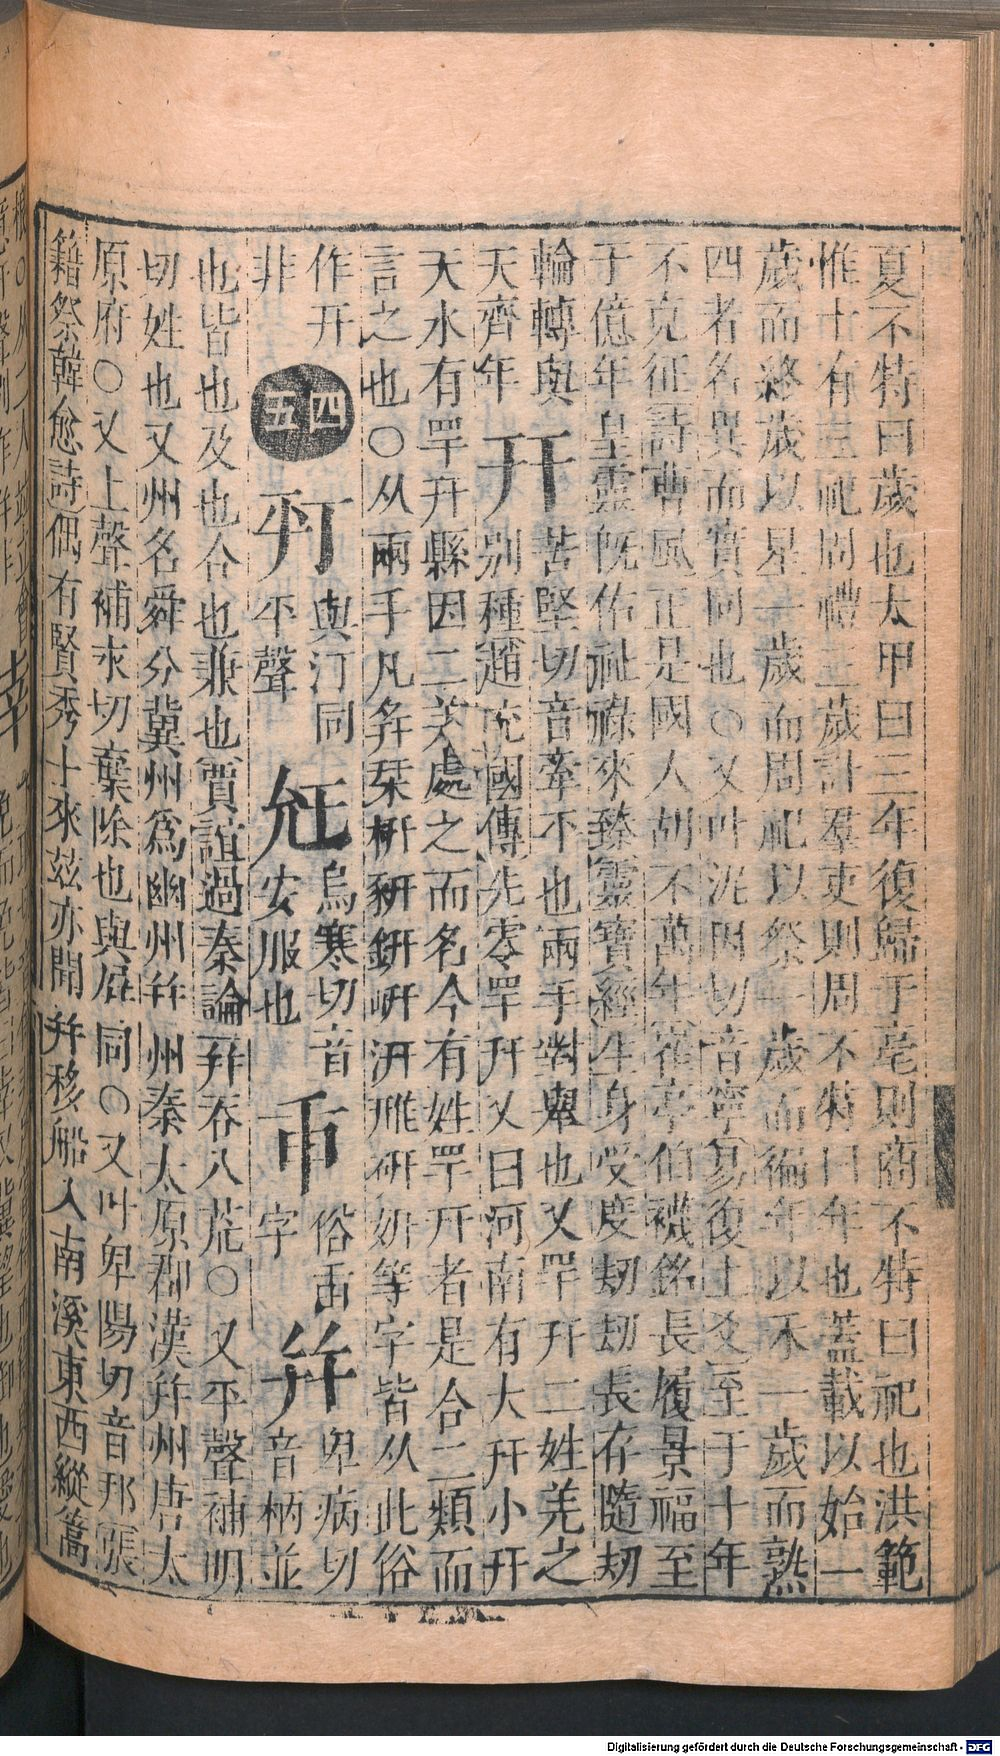 夏不特曰歲也太甲曰三年復歸于亳則商不特曰祀也洪範
惟十有三祀周禮三歲計羣吏則周不特曰年也蓋載以始一
歲而終歲以星一歲而周祀以祭一歲而徧年以禾一歲而熟
四者名異而實同也〇又叶泥因切音寧易復上爻至于十年
不克征詩曹風正是國人胡不萬年崔亭伯襪銘長履景福至
于億年皇靈旣佑祉祿來臻靈寶經生身受度劫劫長存隨劫
輪轉與天齊年
幵
苦堅切音牽不也兩手對舉也又䍐幵二姓羌之
別種趙充國傳先零䍐幵又曰河南有大幵小幵
天水有䍐幵縣因二羌處之而名今有姓䍐幵者是合二類而
言之也〇从兩手凡幷栞枅豣銒岍汧雃硏妍等字皆从此俗
作开非
四五
與汀同平聲
烏寒切音安服也
俗雨字
幷
卑病切音柄並
也皆也及也合也兼也賈誼過秦論幷吞八荒〇又平聲補明
切姓也又州名舜分冀州爲幽州幷州秦太原郡漢幷州唐太
原府〇又上聲補永切棄除也與屏同〇又叶卑陽切音邦張
籍祭韓愈詩偶有賢秀士來茲亦開幷移船入南溪東西縱篙
Digitalisierung gefördert durch die Deutsche Forschungsgemeinschaft - DFG